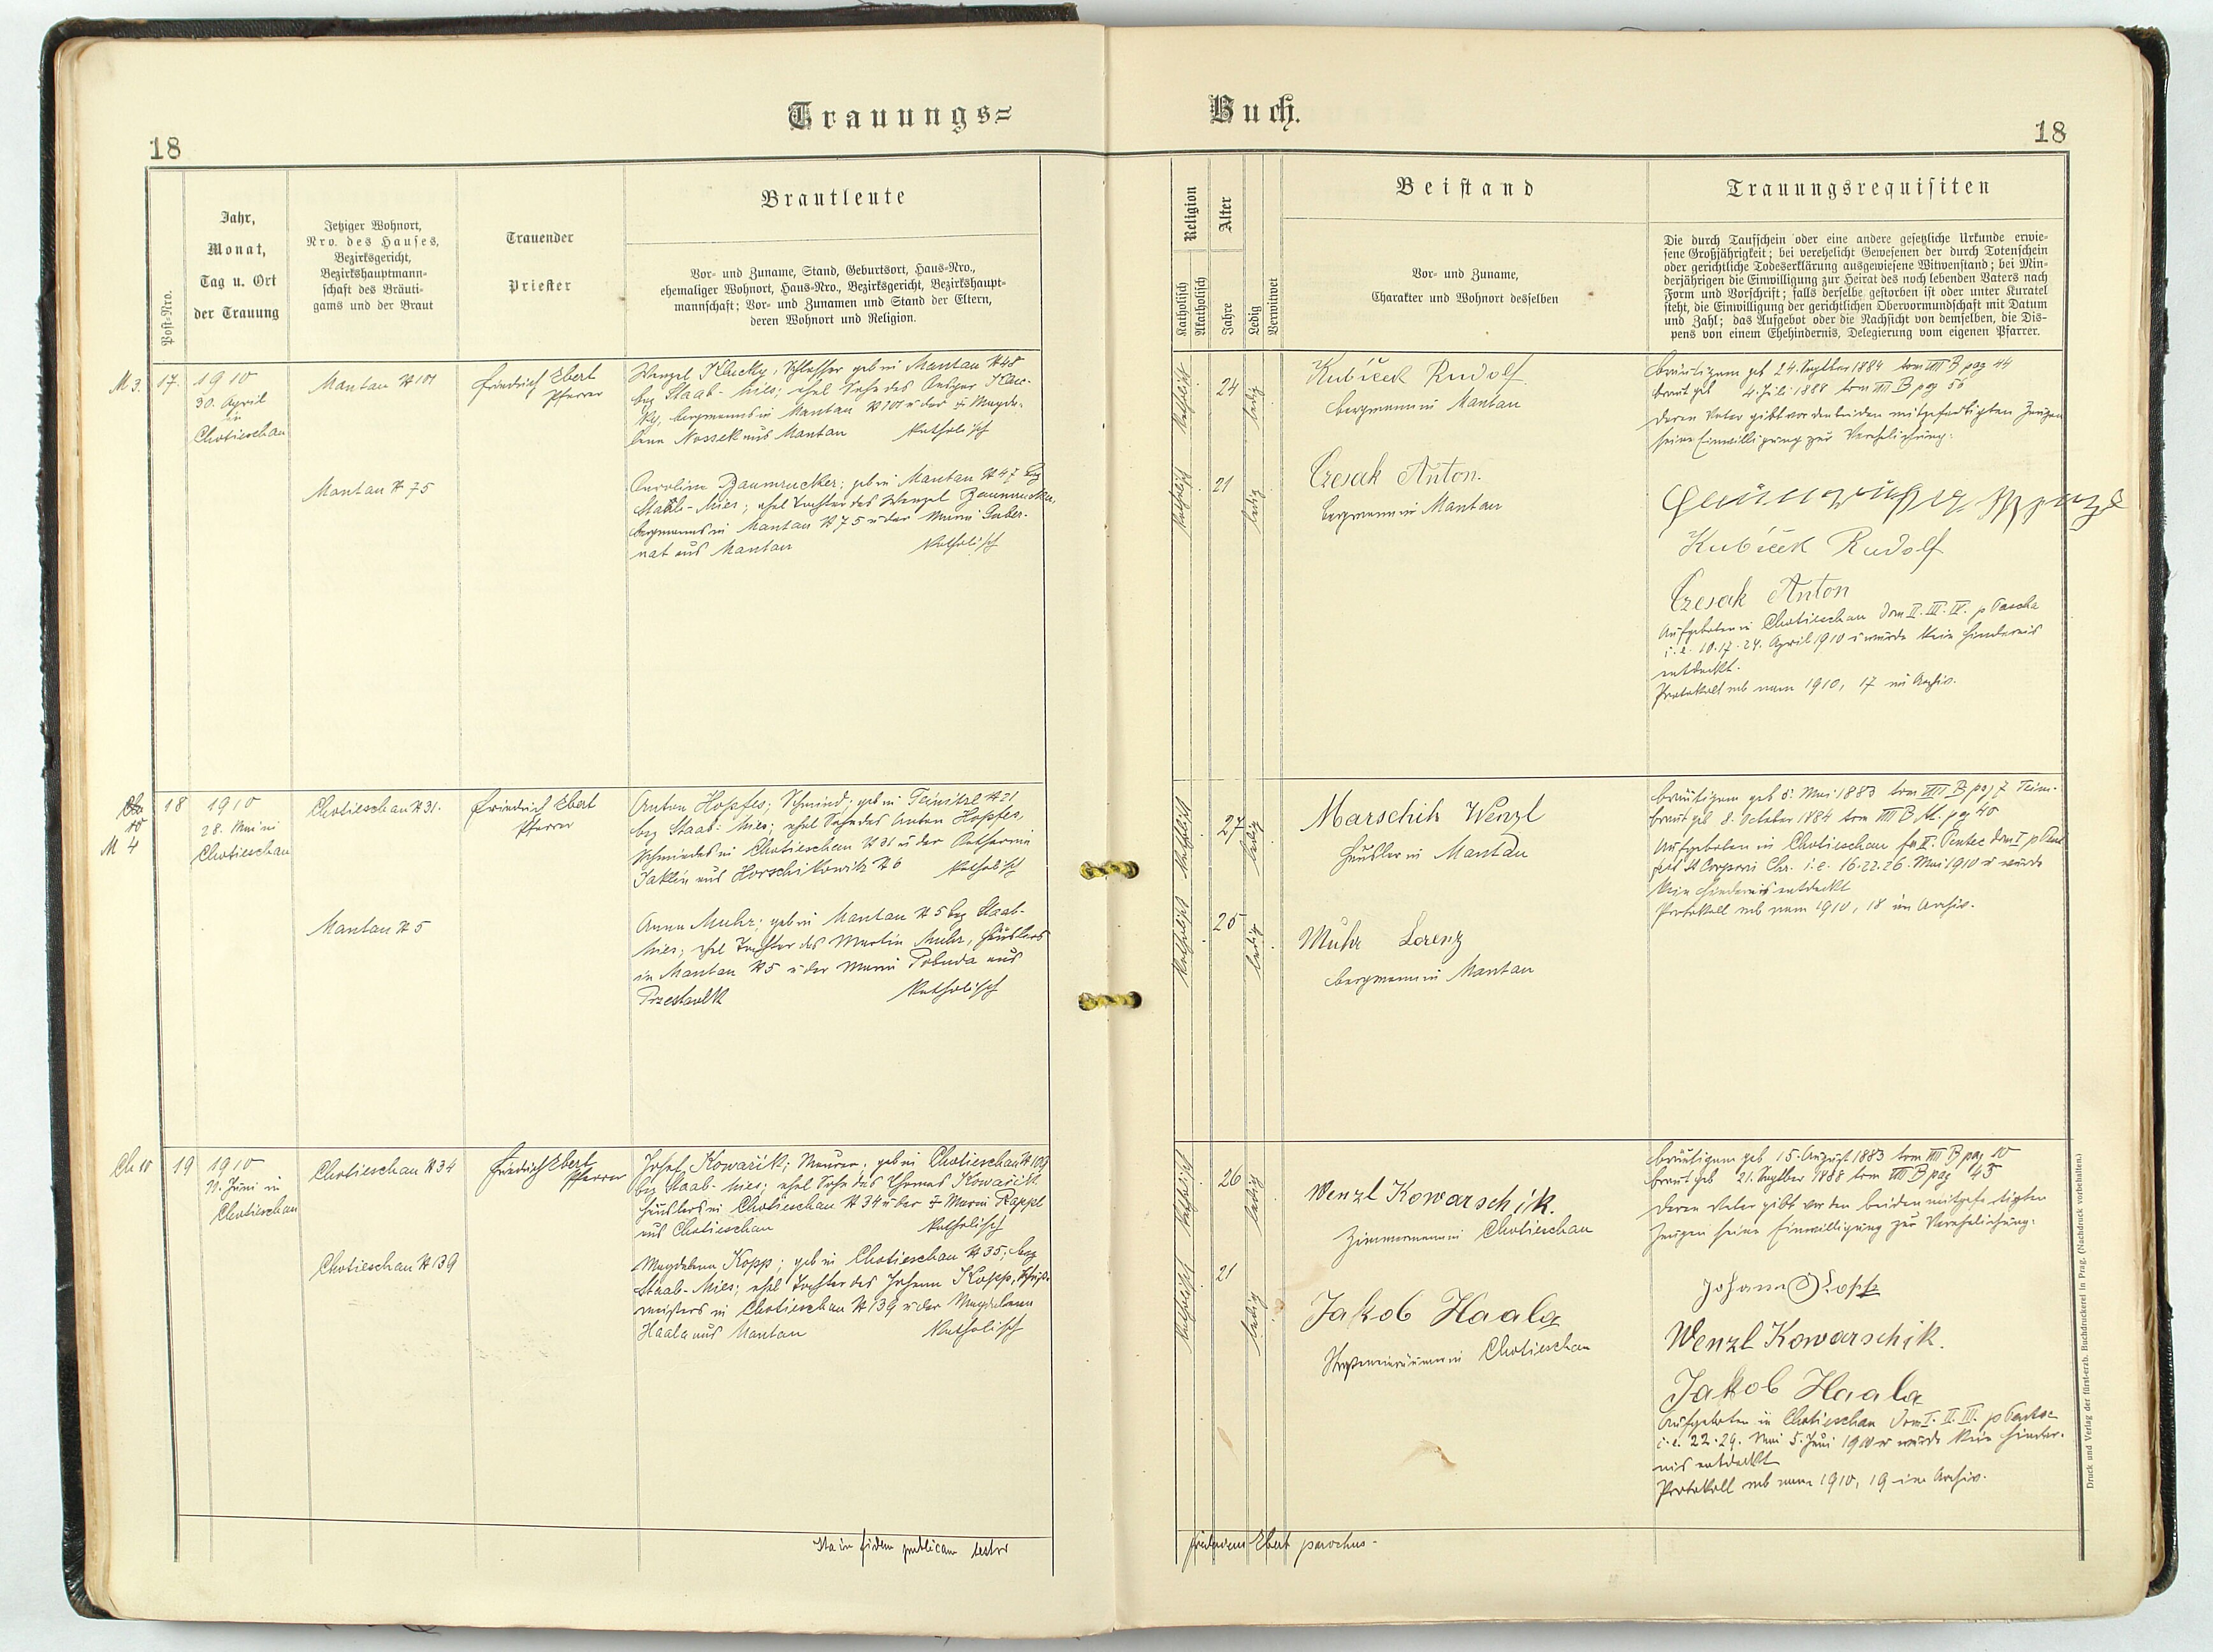 Trauungs=
Buch.
18
18
Post-Nro.
Jahr,
Monat,
Tag u. Ort
der Trauung
Jetziger Wohnort,
Nro. des Hauses,
Bezirksgericht,
Bezirkshauptmann-
schaft des Bräuti-
gams und der Braut
Trauender
Priester
Brautleute
Vor- und Zuname, Stand, Geburtsort, Haus-Nro.,
ehemaliger Wohnort, Haus-Nro., Bezirksgericht, Bezirkshaupt-
mannschaft; Vor- und Zunamen und Stand der Eltern,
deren Wohnort und Religion.
Religion
Katholisch
Akatholisch
Alter
Jahre
Ledig
Verwitwet
Beistand
Vor- und Zuname,
Charakter und Wohnort desselben
Trauungsrequisiten
Die durch Taufschein oder eine andere gesetzliche Urkunde erwie-
sene Großjährigkeit; bei verehelicht Gewesenen der durch Totenschein
oder gerichtliche Todeserklärung ausgewiesene Witwenstand; bei Min-
derjährigen die Einwilligung zur Heirat des noch lebenden Vaters nach
Form und Vorschrift; falls derselbe gestorben ist oder unter Kuratel
steht, die Einwilligung der gerichtlichen Obervormundschaft mit Datum
und Zahl; das Aufgebot oder die Nachsicht von demselben, die Dis-
pens von einem Ehehindernis, Delegierung vom eigenen Pfarrer.
M 3.
17.
1910
30. April
in
Chotieschau
Mantau N 101
Friedrich Ebert
Pfarrer
Wenzel Klucky, Schlosser geb in Mantau N 48
bez Staab-Mies; ehel Sohn des
ky, Bergmanns in Mantau N 101 u der + Magda-
lena Nossek aus Mantau katholisch
Mantau N 75
Carolina Baumrucker; geb in Mantau N 47 bez
Staab-Mies; ehel Tochter des Wenzel Baumrucker,
Bergmanns in Mantau N 75 u der Maria Guber-
nat aus Mantau katholisch
katholisch
24
ledig
Kubíček Rudolf
Bergmann in Mantau
katholisch
21
ledig
Czesak Anton.
Bergmann in Mantau
Bräutigam geb 24. Septber 1884 tom VII B pag 44
Braut geb 4. Juli 1888 tom VII B pag 56
Deren Vater gibt vor den beiden mitgefertigten Zeugen
seine Einwilligung zur Verehelichung.
Kubíček Rudolf
Czesak Anton
Aufgeboten in Chotieschau Dom II. III. IV. p Pascha
i. e. 10. 17. 24. April 1910 u wurde kein Hindernis
entdeckt.
Protokoll sub num 1910, 17 im Archiv.
M 4
18
1910
28. Mai in
Chotieschau
Chotieschau N 31.
Friedrich Ebert
Pfarrer
Anton Hopfes; Schmied; geb in Teinitzl N 21
bez Staab-Mies; ehel Sohn des Anton Hopfes,
Schmiedes in Chotieschau N 31 u der Katharina
Jaklin aus Horschikowitz N 6 katholisch
Mantau N 5
Anna Muhr; geb in Mantau N 5 bez Staab-
Mies; ehel Tochter des Martin Muhr, Häuslers
in Mantau N 5 u der Maria Pobuda aus
Przestawlk katholisch
katholisch
27
ledig
Marschik Wenzl
Häusler in Mantau
katholisch
25
ledig
Muhr Lorenz
Bergmann in Mantau
Bräutigam geb 8. Mai 1883 tom VIII B pag 7 Tein.
Braut geb 8. October 1884 tom VII B M. pag 40
Aufgeboten in Chotieschau fer II. Pentec Dom I p Pent
fest SS Corporis Chr. i. e. 16. 22. 26. Mai 1910 u wurde
kein Hindernis entdeckt
Protokoll sub num 1910, 18 im Archiv.
Ch 10
19
1910
11. Juni in
Chotieschau
Chotieschau N 34
Friedrich Ebert
Pfarrer
Josef Kowařik; Maurer; geb in Chotieschau N 109
bez Staab-Mies; ehel Sohn des Thomas Kowařik
Häuslers in Chotieschau N 34 u der + Maria Rappl
aus Chotieschau katholisch
Chotieschau N 139
Magdalena Kopp; geb in Chotieschau N 35; bez
Staab-Mies; ehel Tochter des Johann Kopp,
meisters in Chotieschau N 139 u der Magdalena
Haala aus Mantau katholisch
katholisch
26
ledig
Wenzl Kowarschik.
Zimmermann in Chotieschau
katholisch
21
ledig
Jakob Haala
Chotieschau
Bräutigam geb 15. August 1883 tom VII B pag 10
Braut geb 21. Septber 1888 tom VIII B pag 43
Deren Vater gibt vor den beiden mitgefertigten
Zeugen seine Einwilligung zur Verehelichung.
Johann Kopp
Wenzl Kowarschik.
Jakob Haala
Aufgeboten in Chotieschau Dom I. II. III. p Pentec
i. e. 22. 29. Mai 5. Juni 1910 u wurde kein Hinder-
nis entdeckt
Protokoll sub num 1910, 19 im Archiv.
Ita in fidem publicam testor
Fridericus Ebert parochus.
Druck und Verlag der fürst-erzb. Buchdruckerei in Prag. (Nachdruck vorbehalten.)